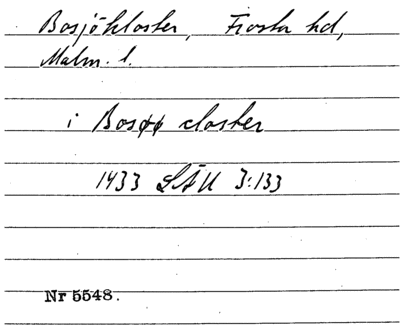 Bosjökloster, Frosta hd,
Malm. l.
i Bosøø closter
1433 LÄU 3:133
Nr 5548.